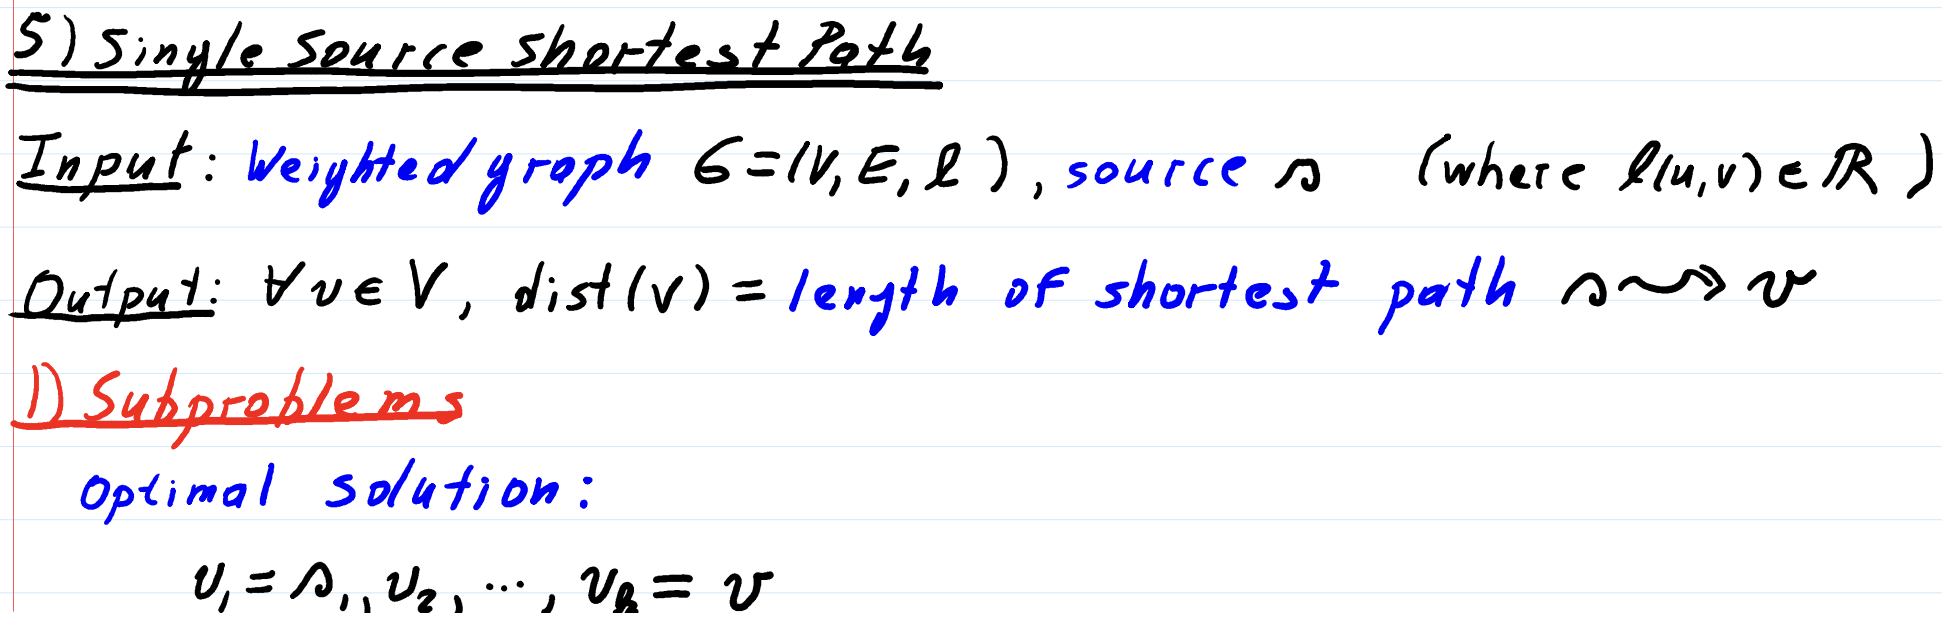 5) Single Source Shortest Path
Input: Weighted graph G=(V, E, ℓ), source s (where ℓ(u,v) ∈ ℝ)
Output: ∀ v ∈ V, dist(v) = length of shortest path s ⇝ v
1) Subproblems
optimal solution:
v₁ = s, v₂, ..., vₖ = v